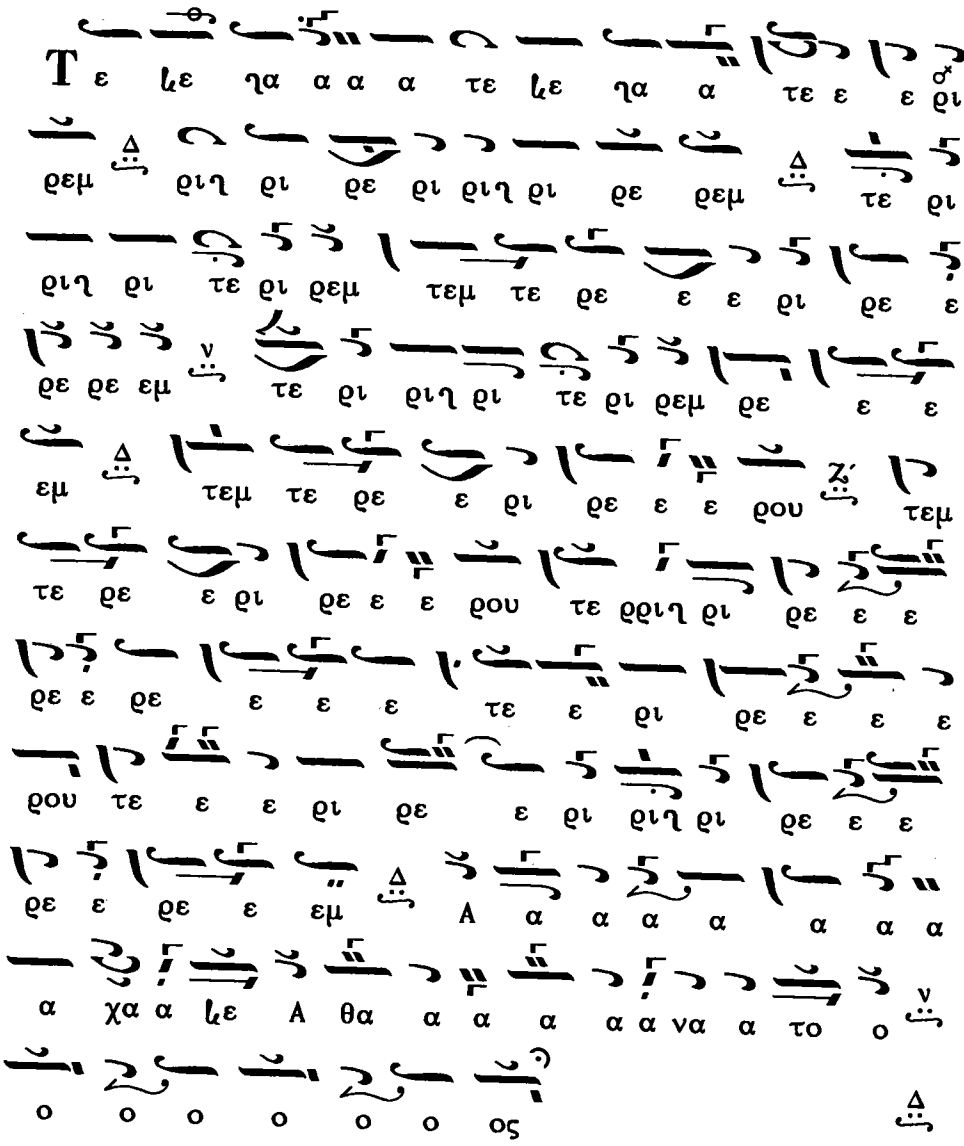 Τ ε կε ղα α α α τε կε ղα α τε ε ε ϱι
ϱεμ Δ ϱιղ ϱι ϱε ϱι ϱιղ ϱι ϱε ϱεμ Δ τε ϱι
ϱιղ ϱι τε ϱι ϱεμ τεμ τε ϱε ε ε ϱι ϱε ε
ϱε ϱε εμ ν τε ϱι ϱιղ ϱι τε ϱι ϱεμ ϱε ε ε
εμ Δ τεμ τε ϱε ε ϱι ϱε ε ε ϱου Ζ΄ τεμ
τε ϱε ε ϱι ϱε ε ε ϱου τε ϱϱιղ ϱι ϱε ε ε
ϱε ε ϱε ε ε ε τε ε ϱι ϱε ε ε ε
ϱου τε ε ε ϱι ϱε ε ϱι ϱιղ ϱι ϱε ε ε
ϱε ε ϱε ε εμ Δ Α α α α α α α α
α χα α կε Α θα α α α α α να α το ο ν
ο ο ο ο ο ο ος Δ